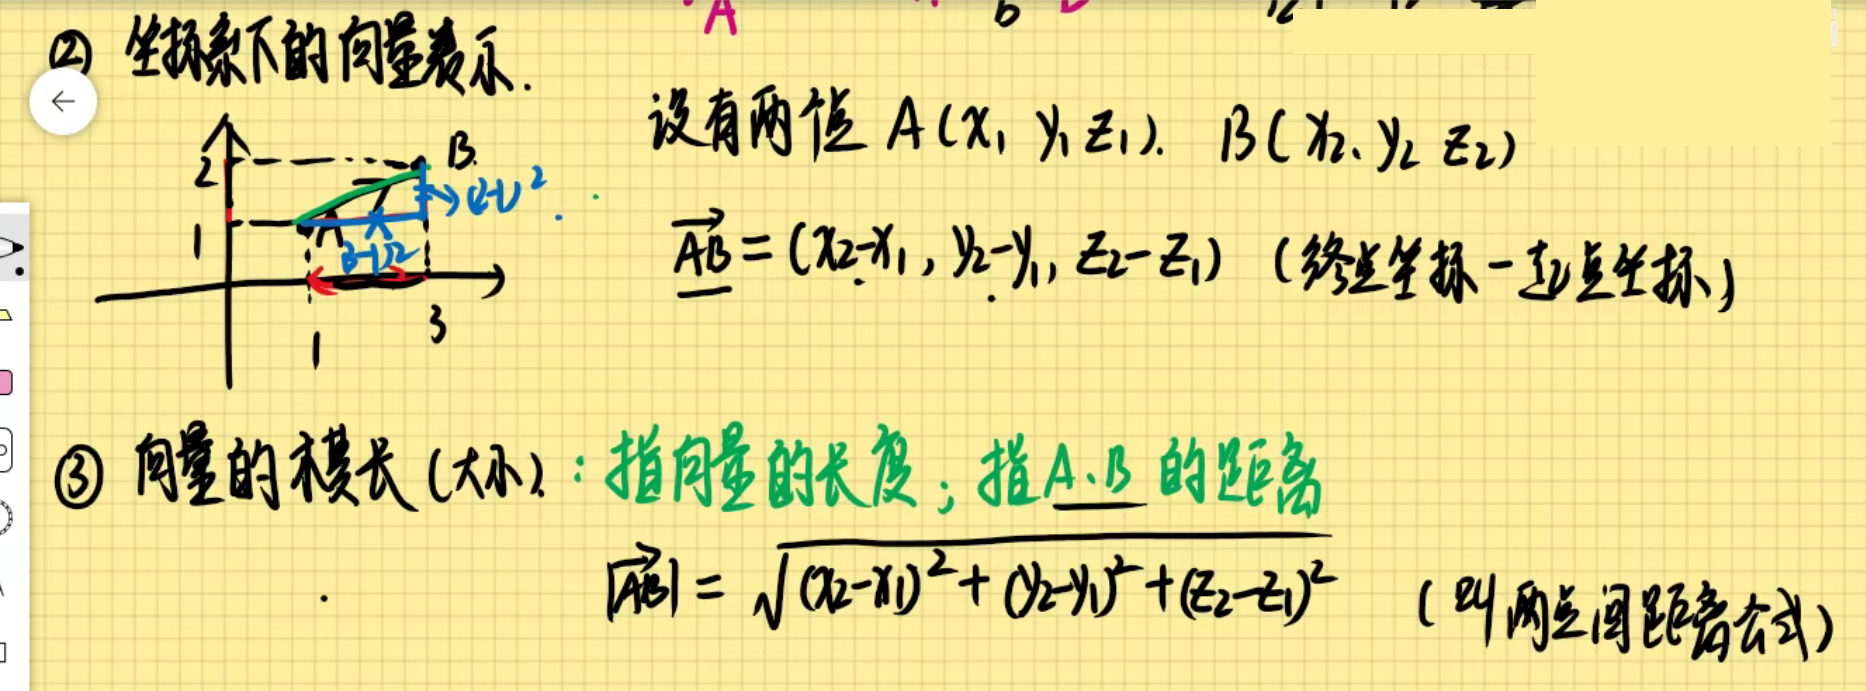 ② 坐标系下的向量表示.
设有两点 A(x₁ y₁ z₁). B(x₂、y₂ z₂)
2
B.
(2-1)²
1
A
(3-1)²
1
3
AB = (x₂-x₁, y₂-y₁, z₂-z₁) (终点坐标-起点坐标)
③ 向量的模长(大小): 指向量的长度; 指A.B 的距离
|AB| = √(x₂-x₁)²+(y₂-y₁)²+(z₂-z₁)² (叫两点间距离公式)